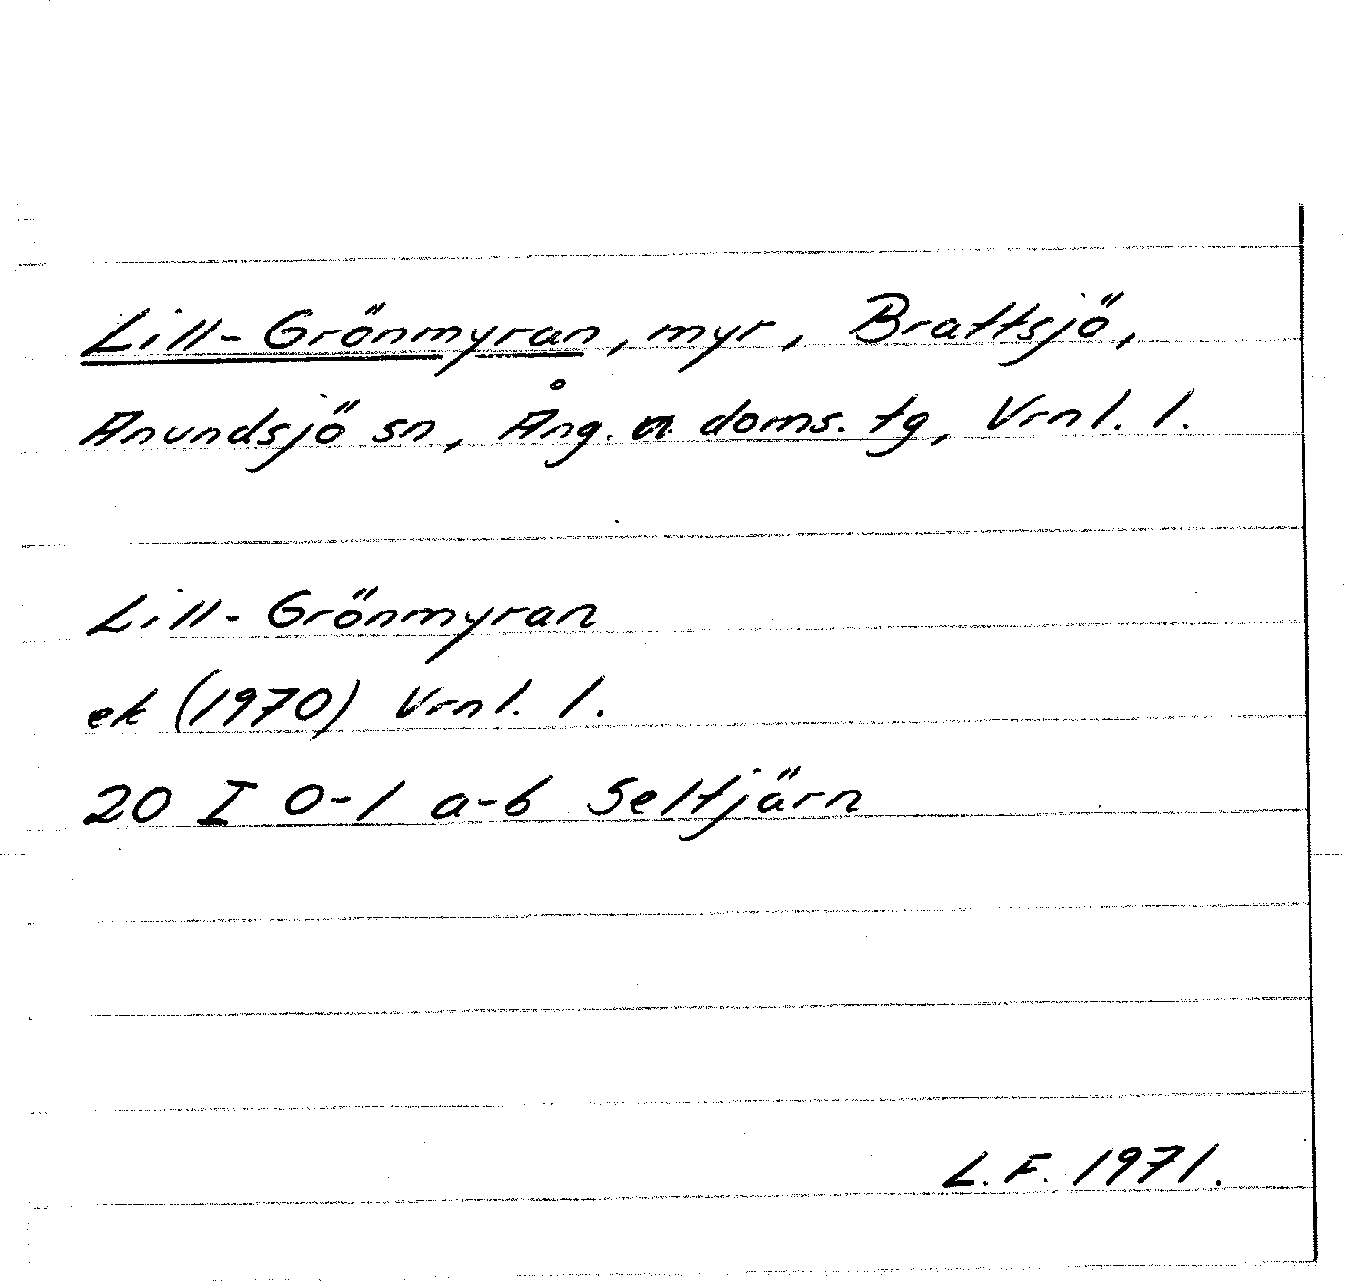 Lill-Grönmyran, myr, Brattsjö,
Anundsjö sn, Ång. n. doms. tg, Vrnl. l.
Lill-Grönmyran
ek (1970) Vrnl. l.
20 I 0-1 a-b Seltjärn
L.F. 1971.